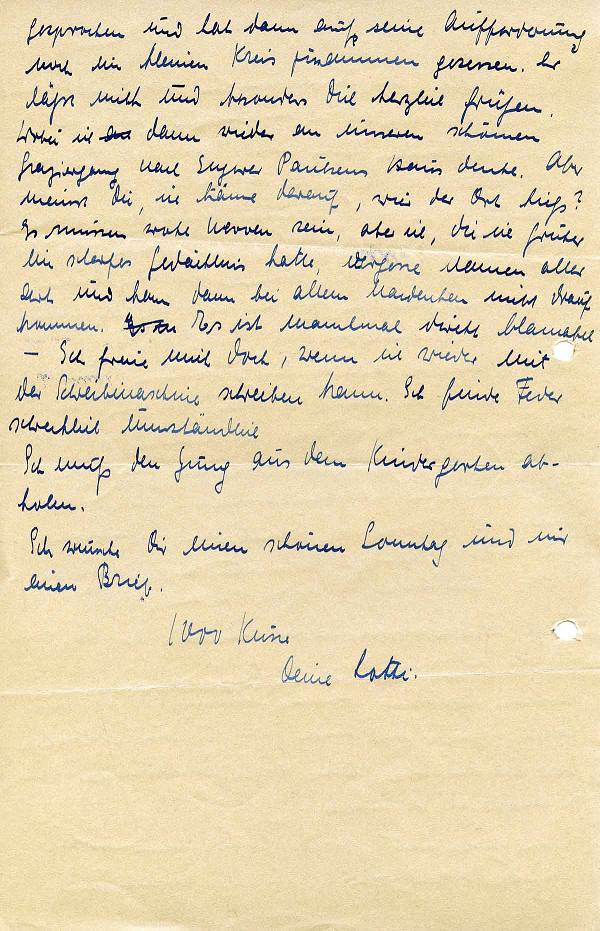 gesprochen und hat dann auf seine Aufforderung
noch im kleinen Kreis zusammen gesessen. Er
läßt mich und besonders Dich herzlich grüßen.
Wobei ich dann wieder an unseren schönen
Spaziergang nach Paulsens Haus denke. Aber
meinst Du, ich käme darauf, wie der Ort hieß?
Es müssen wohl Nerven sein, aber ich, die ich früher
ein scharfes Gedächtnis hatte, vergesse Namen aller
Art und kann dann bei allem Nachdenken nicht drauf
kommen. Es ist manchmal direkt blamabel
– Ich freue mich doch, wenn ich wieder mit
der Schreibmaschine schreiben kann. Ich finde Feder
schrecklich umständlich
Ich muß den Jung aus dem Kindergarten ab-
holen.
Ich wünsche Dir einen schönen Sonntag und mir
einen Brief.
1000 Küsse
Deine Lotti.